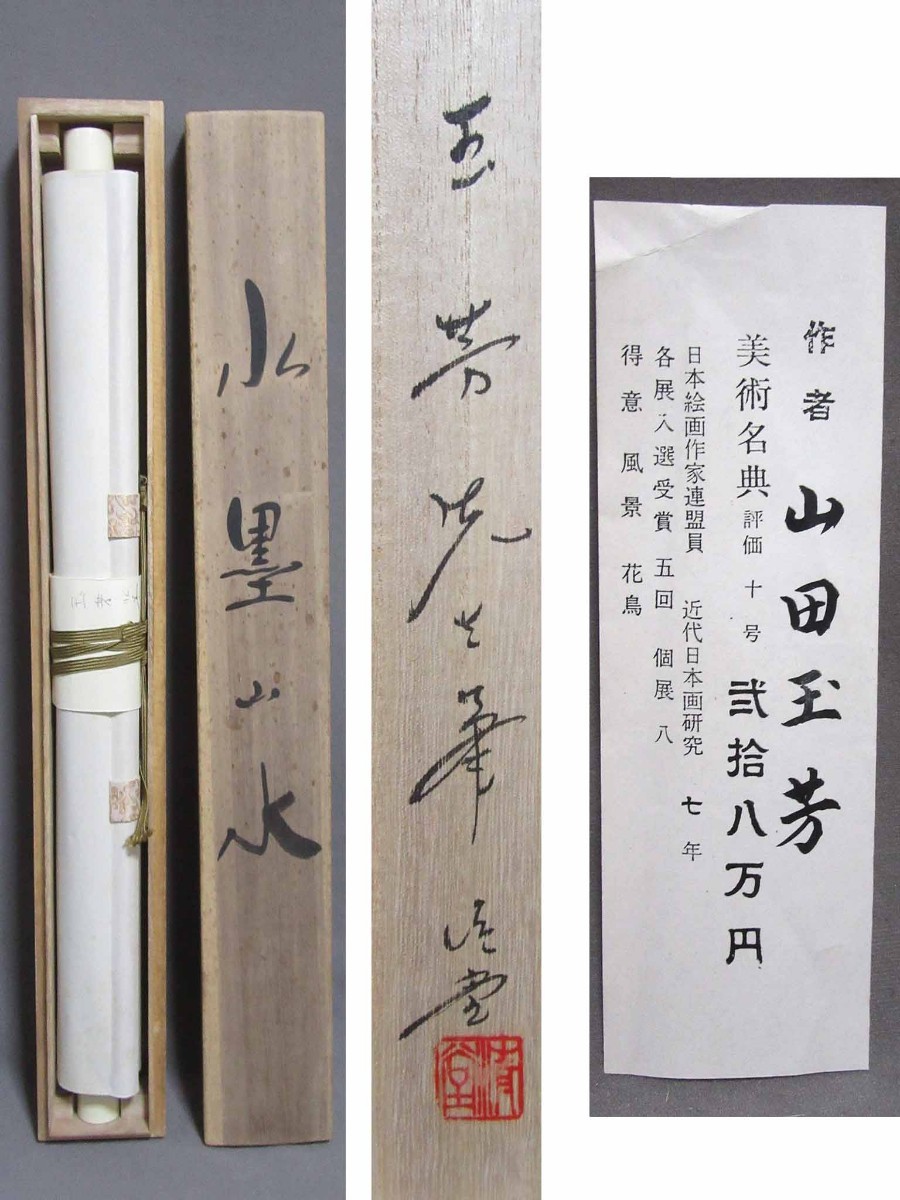 水墨山水
玉芳先生筆
作者 山田玉芳
美術名典 評価 十号 弐拾八万円
日本絵画作家連盟員 近代日本画研究 七年
各展入選受賞 五回 個展 八
得意 風景 花鳥